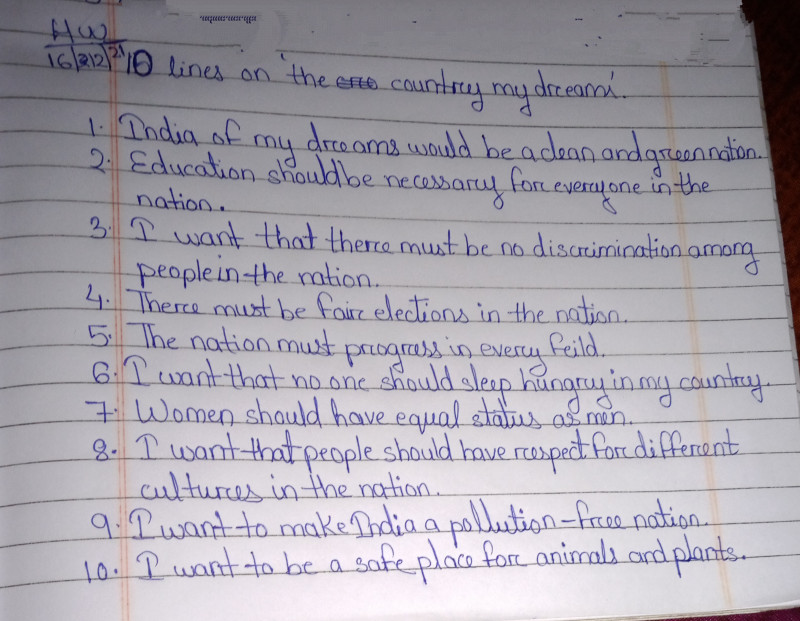 HW
16/2/21 10 lines on 'the country my dream'.
1. India of my dreams would be a clean and green nation.
2. Education should be necessary for everyone in the
nation.
3. I want that there must be no discrimination among
people in the nation.
4. There must be fair elections in the nation.
5. The nation must progress in every feild.
6. I want that no one should sleep hungry in my country.
7. Women should have equal status as men.
8. I want that people should have respect for different
cultures in the nation.
9. I want to make India a pollution-free nation.
10. I want to be a safe place for animals and plants.